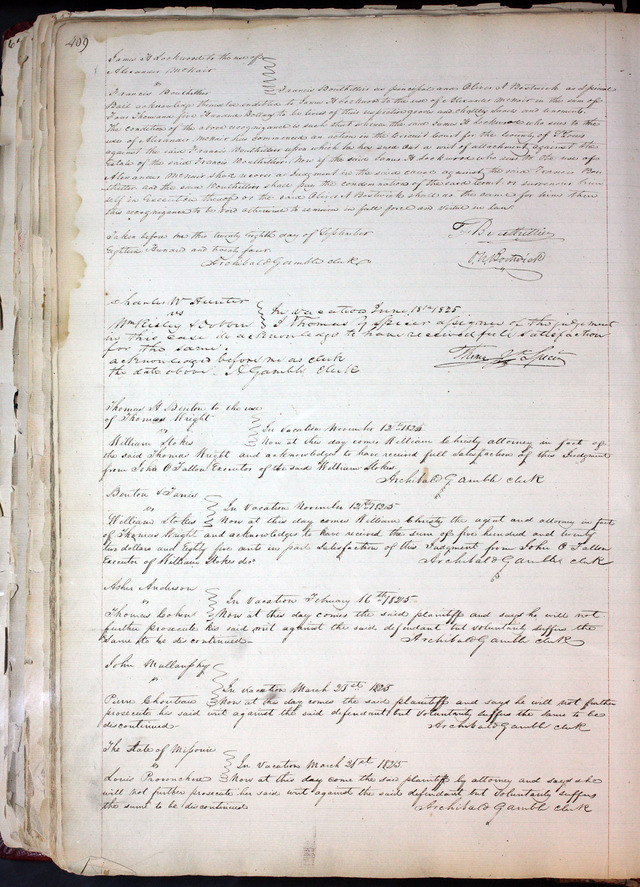 409
James H Lockwood to the use of
Alexander McNair
vs
Francis Bouthillier Francis Bouthillier as principal and Oliver A Bostwick as Special
Bail acknowledge themselves indebted to James H Lockwood to the use of Alexander McNair in the sum of
Four Thousand five Hundred Dollars to be levied of their respective goods and chattels lands and tenements.
The condition of the above recognizance is such that whereas the said James H Lockwood who sues to the
use of Alexander McNair has commenced an action in the Circuit Court for the County of St Louis
against the said Francis Bouthillier upon which he has sued out a writ of attachment against the
Estate of the said Francis Bouthillier. Now if the said James H Lockwood who sues to the use of
Alexander McNair shall recover a Judgment in the said cause against the said Francis Bou
thillier and the said Bouthillier shall pay the condemnation of the said Court or surrender him
self in Execution therefor or the said Oliver A Bostwick shall do the same for him then
this recognizance to be void otherwise to remain in full force and virtue in law.
Taken before me this twenty eighth day of September
Eighteen Hundred and twenty four
Archibald Gamble clerk
F Bouthillier
O A Bostwick
Charles W Hunter
vs In Vacation June 18th 1825
Wm Risley & I Thomas G Spicer assignee of the judgement
in this case do acknowledge to have received full satisfaction
for the same.
acknowledged before me as clerk
the date above. A Gamble Clerk
Thomas G Spicer
Thomas H Benton to the use
of Thomas Wright
vs In Vacation November 12th 1825
William Stokes Now at this day comes William Christy attorney in fact of
the said Thomas Wright and acknowledged to have received full Satisfaction of this Judgment
from John O'Fallon Executor of the said William Stokes
Archibald Gamble clerk
Benton &
vs In Vacation November 12th 1825
William Stokes Now at this day comes William Christy the agent and attorney in fact
of Thomas Wright and acknowledges to have received the sum of five hundred and twenty
two dollars and Eighty five cents in part Satisfaction of this Judgment from John O Fallon
Executor of William Stokes decd
Archibald Gamble clk
Asher Anderson
vs In Vacation February 16th 1825
Thomas Cohen Now at this day comes the said plaintiff and says he will not
further prosecute his said writ against the said defendant but voluntarily suffers the
same to be discontinued
Archibald Gamble clerk
John Mullanphy
vs In Vacation March 21st 1825
Pierre Chouteau Now at the day comes the said plaintiff and says he will not further
prosecute his said writ against the said defendant but voluntarily suffers the same to be
discontinued
Archibald Gamble clerk
The State of Missouri
vs In Vacation March 21st 1825
Louis Provencher Now at this day come the said plaintiff by attorney and says she
will not further prosecute her said writ against the said defendant but voluntarily suffers
the same to be discontinued
Archibald Gamble clerk